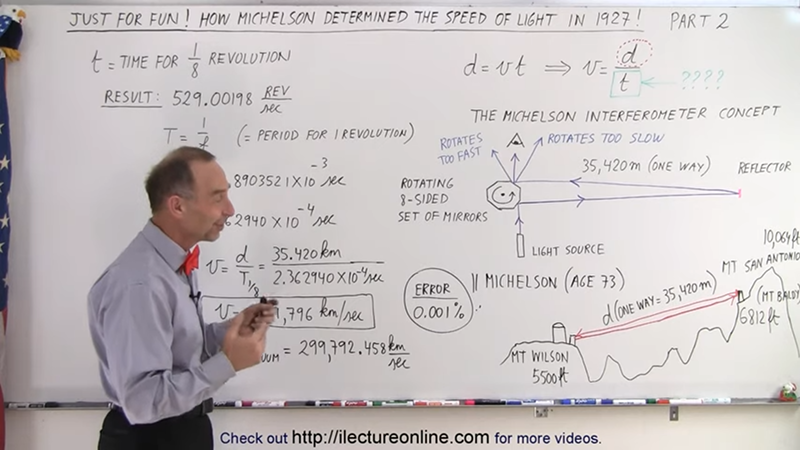 JUST FOR FUN! HOW MICHELSON DETERMINED THE SPEED OF LIGHT IN 1927! PART 2
t = TIME FOR 1/8 REVOLUTION
RESULT: 529.00198 REV/sec
T = 1/f (= PERIOD FOR 1 REVOLUTION)
8903521 X 10^-3 sec
62940 X 10^-4 sec
v = d/T1/8 = 35.420 km / 2.362940 X 10^-4 sec
v = ,796 km/sec
= 299,792.458 km/sec
ERROR
0.001%
d = vt ⟹ v = d/t ← ????
THE MICHELSON INTERFEROMETER CONCEPT
ROTATES TOO FAST
ROTATES TOO SLOW
35,420 m (ONE WAY)
REFLECTOR
ROTATING
8-SIDED
SET OF MIRRORS
LIGHT SOURCE
MICHELSON (AGE 73)
10,064 ft
MT SAN ANTONIO
(MT BALDY
6812 ft
d (ONE WAY = 35,420 m)
MT WILSON
5500 ft
Check out http://ilectureonline.com for more videos.